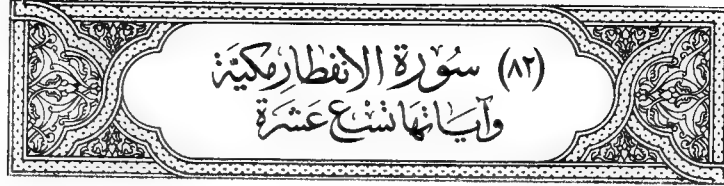 (٨٢) سُوْرَةِ الانفطارِ مكيَّة
وآيَاتهَا تسْع عَشرَة